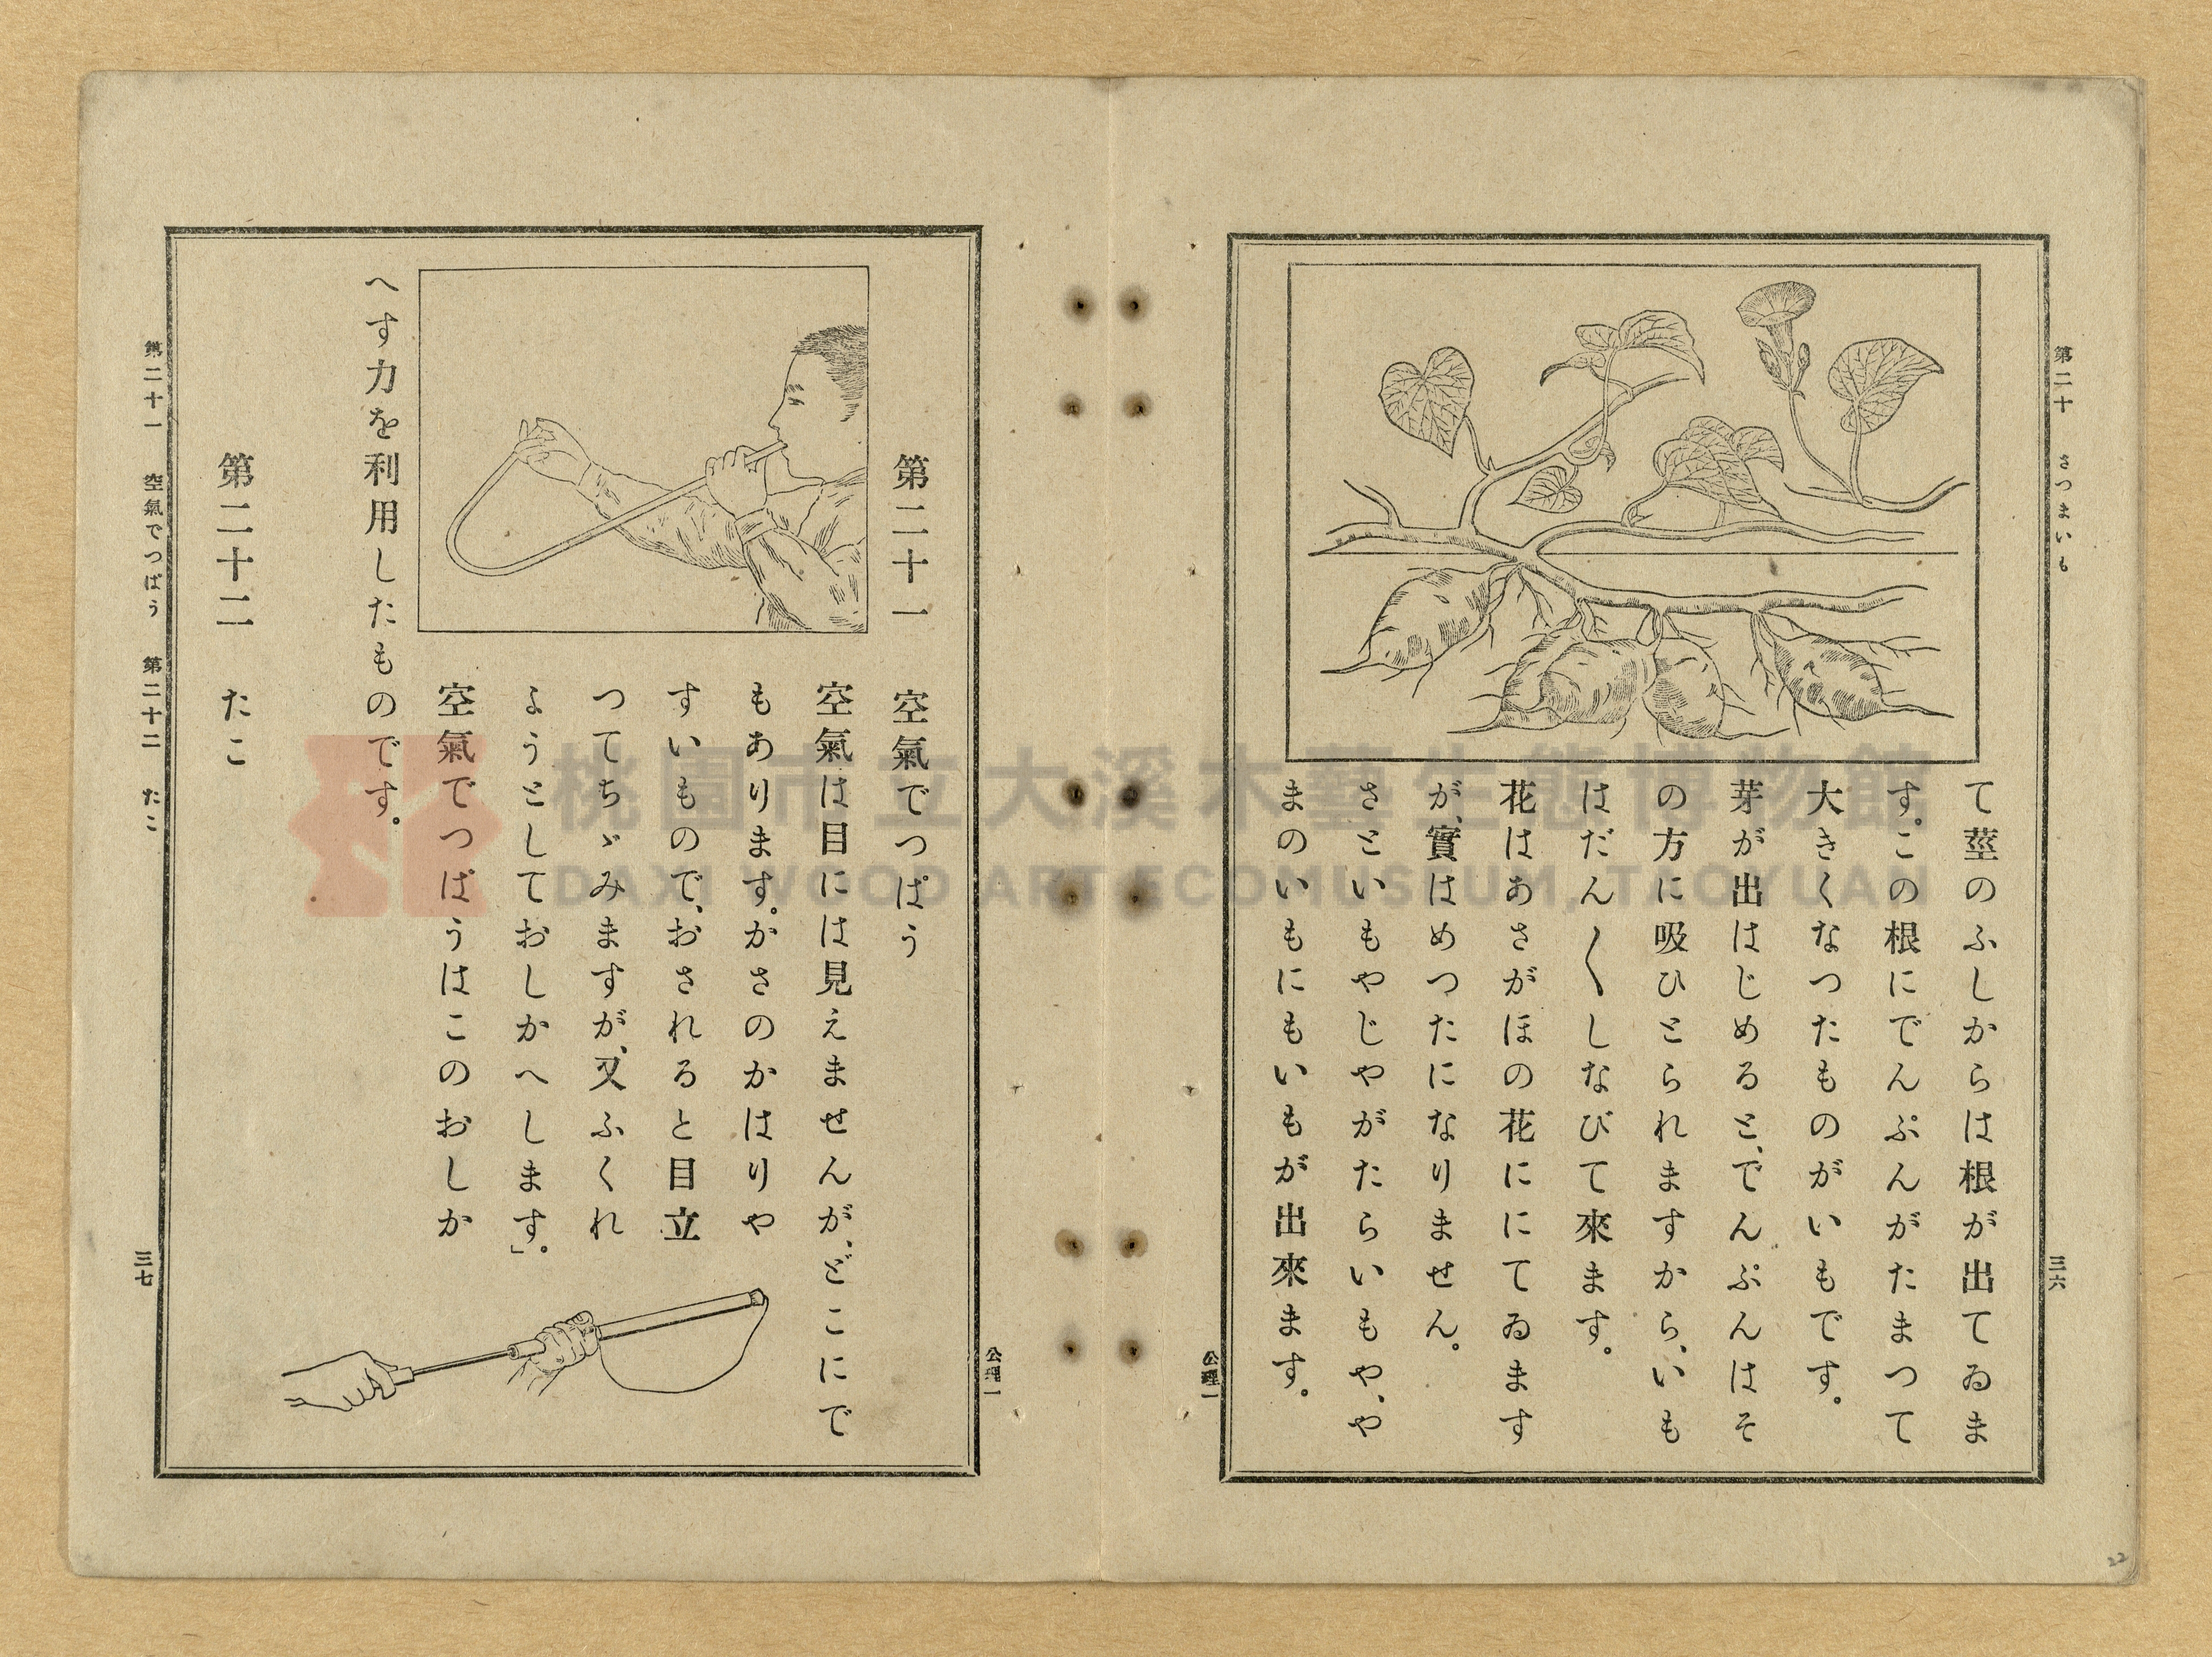 第二十　さつまいも
三六
て莖のふしからは根が出てゐま
す。この根にでんぷんがたまつて
大きくなつたものがいもです。
芽が出はじめると、でんぷんはそ
の方に吸ひとられますから、いも
はだん〳〵しなびて來ます。
花はあさがほの花ににてゐます
が、實はめつたになりません。
さといもやじやがたらいもや、や
まのいもにもいもが出來ます。
公理一
公理一
第二十一　空氣でつぱう
空氣は目には見えませんが、どこにで
もあります。かさのかはりや
すいもので、おされると目立
つてちゞみますが、又ふくれ
ようとしておしかへします」。
空氣でつぱうはこのおしか
へす力を利用したものです。
第二十二　たこ
第二十一　空氣でつぱう　第二十二　たこ
三七
22
桃園市立大溪木藝生態博物館
DAXI WOOD ART ECOMUSEUM, TAOYUAN